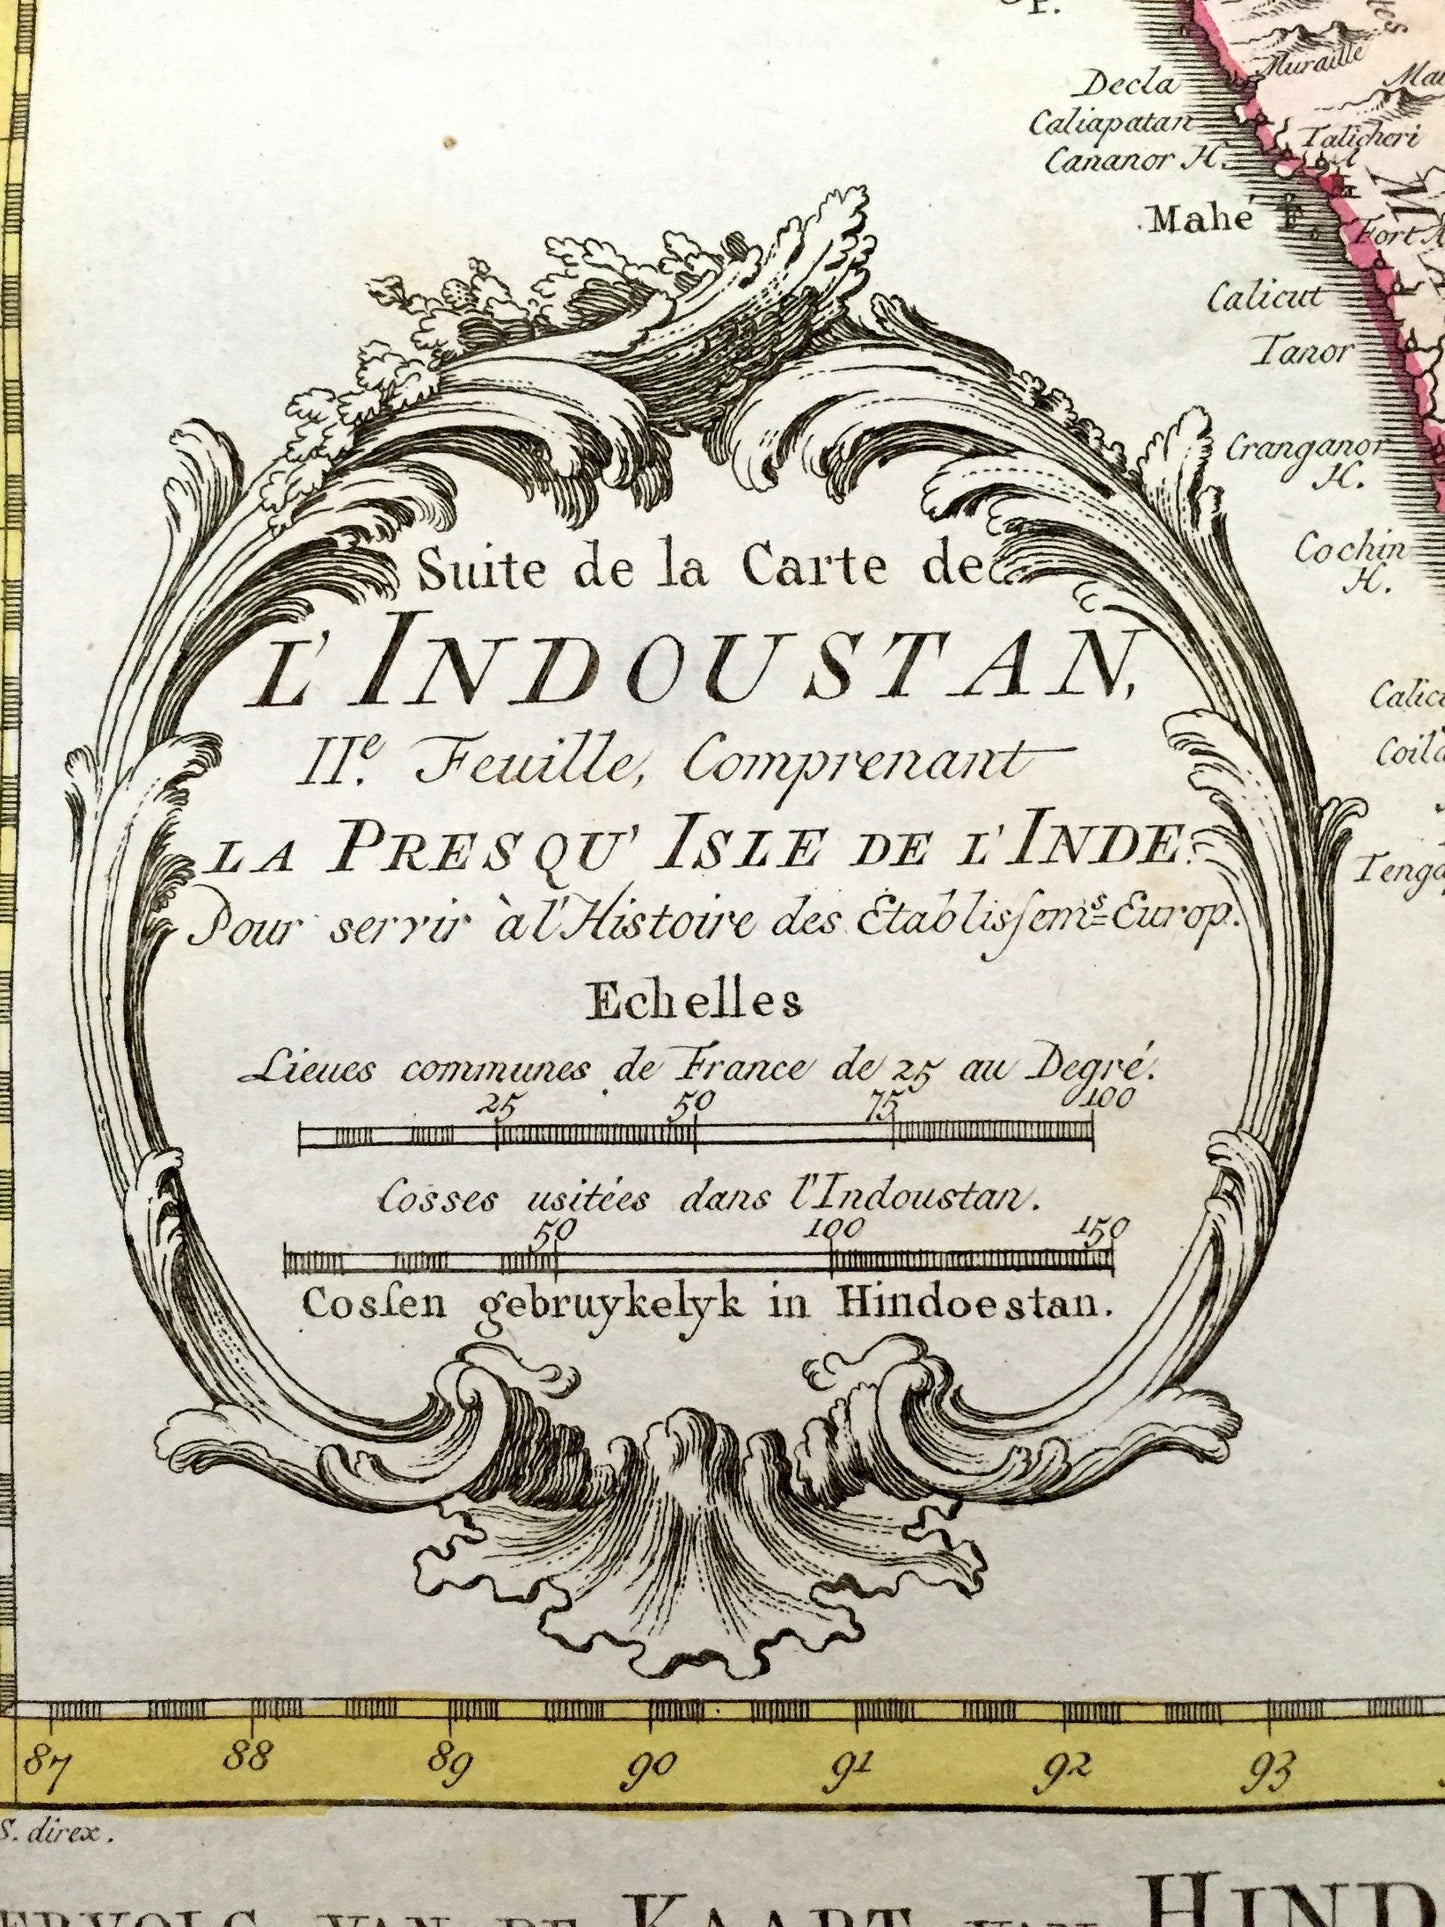 Decla
Muraille
Caliapatan
Talicheri
Cananor H.
Mahé F.
Fort
Calicut
Tanor
Cranganor
H.
Cochin
H.
Suite de la Carte de
L'INDOUSTAN,
IIe. Feuille, Comprenant
LA PRESQU' ISLE DE L'INDE.
Pour servir à l'Histoire des Etablissems. Europ.
Echelles
Lieues communes de France de 25 au Degré.
25 50 75 100
Cosses usitées dans l'Indoustan.
50 100 150
Cosſen gebruykelyk in Hindoestan.
87 88 89 90 91 92 93
S. direx.
VAN DE KAART VAN HIND